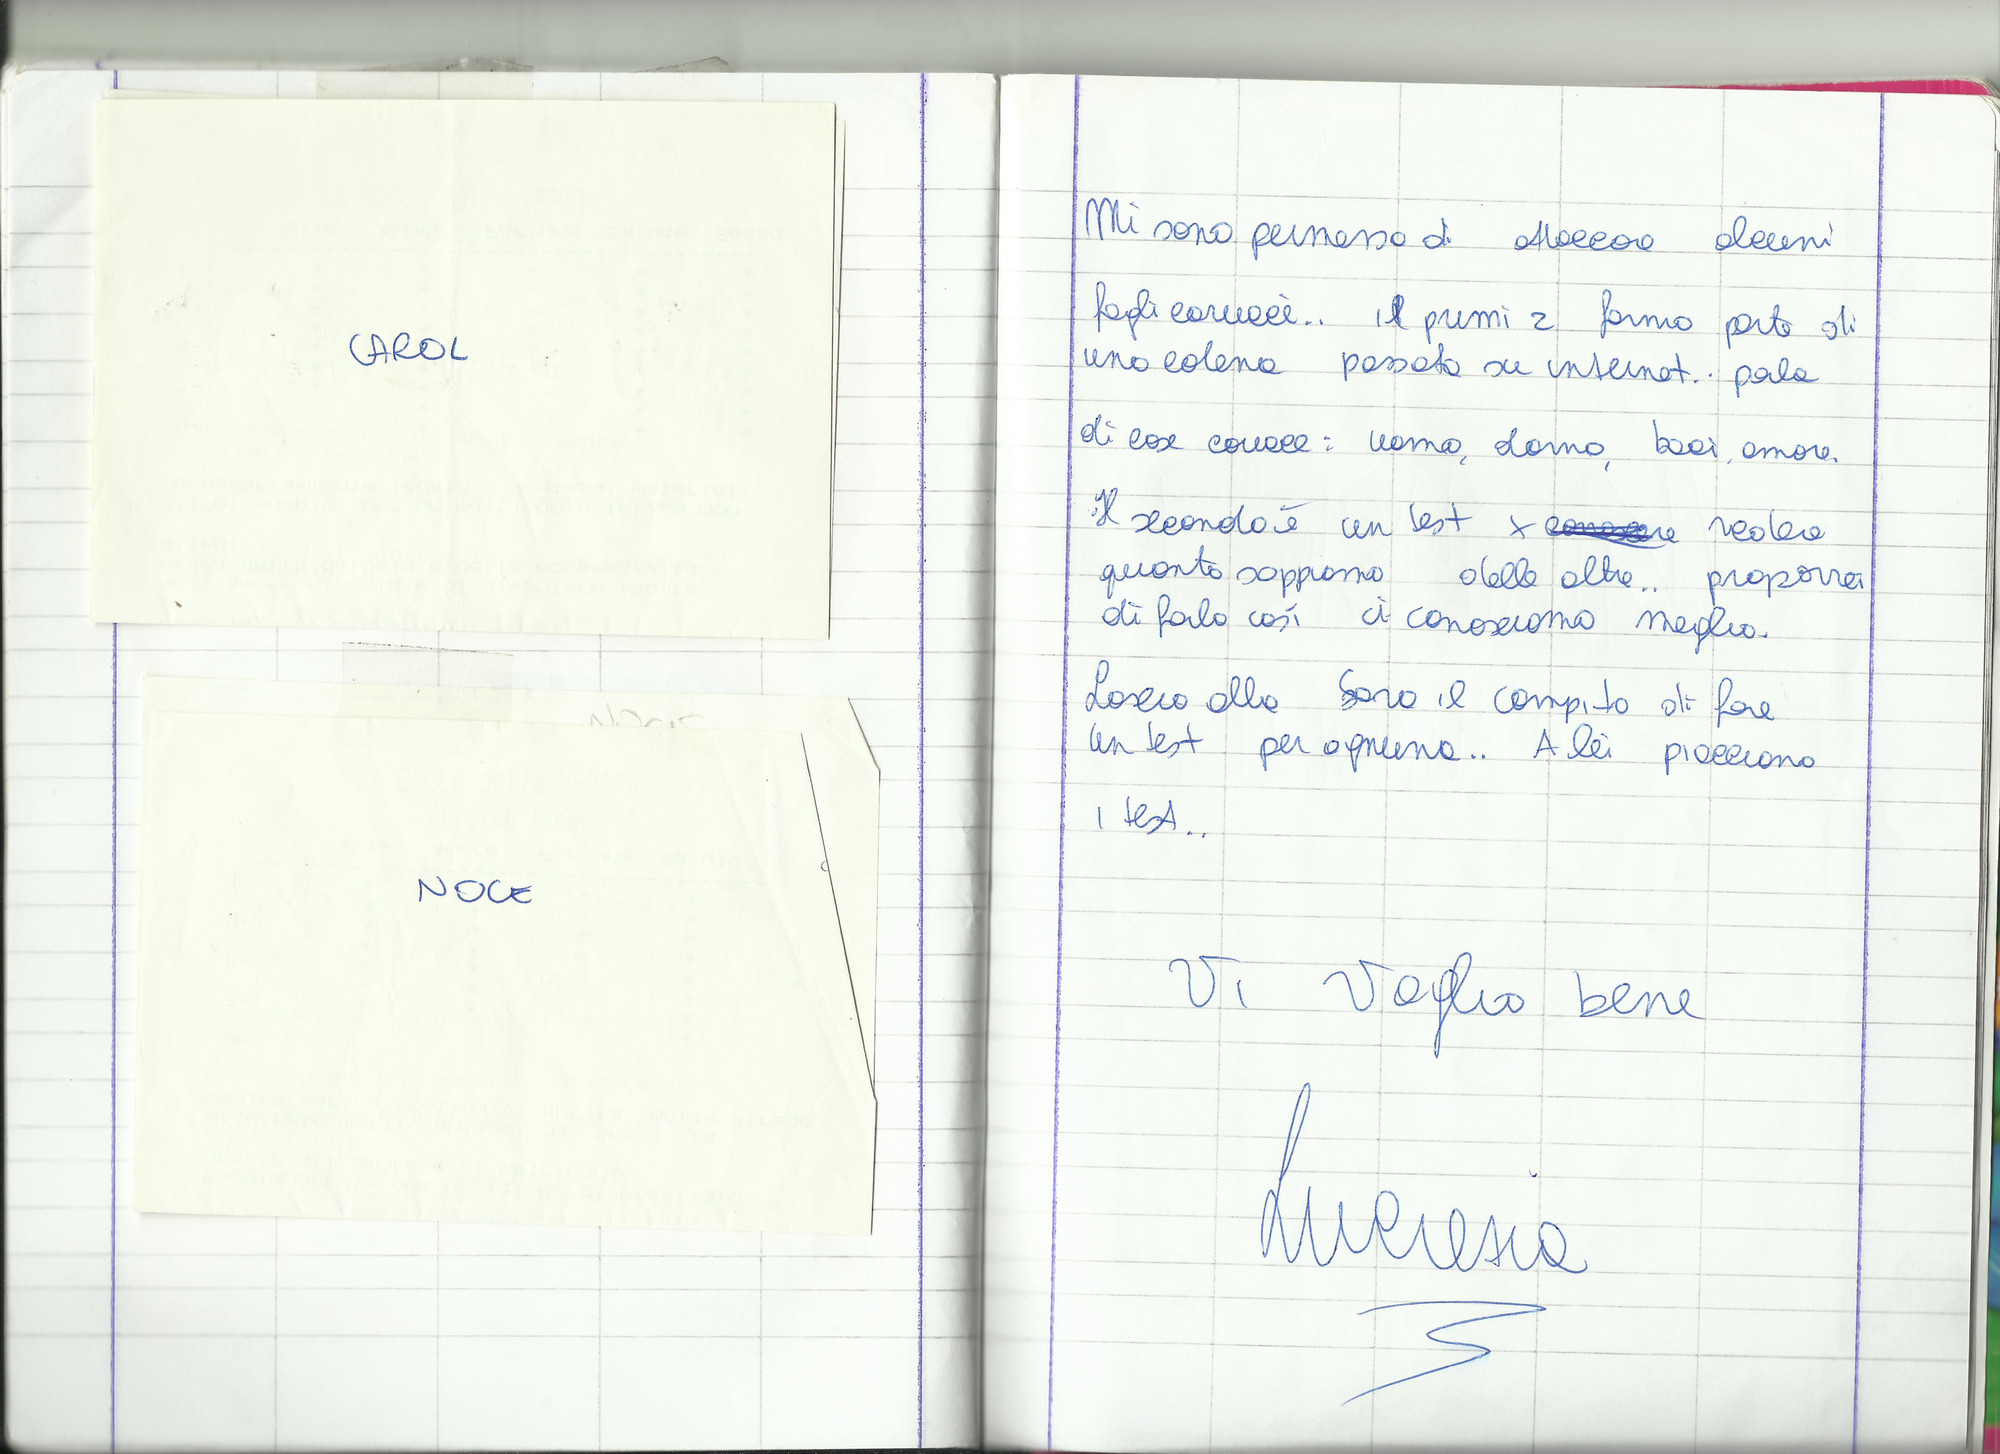 CAROL
NOCE
Mi sono permesso di attaccare alcuni
fogli carucci.. il primi 2 fanno parte di
una catena passata su internet.. parla
di cose carucce: uomo, donna, baci, amore.
Il secondo è un test x vedere
quanto sappiamo delle altre.. proporrei
di farlo così ci conosciamo meglio.
Lascio alla Sara il compito di fare
un test per ognuna.. A lei piacciono
i test..
Vi voglio bene
Lucresia